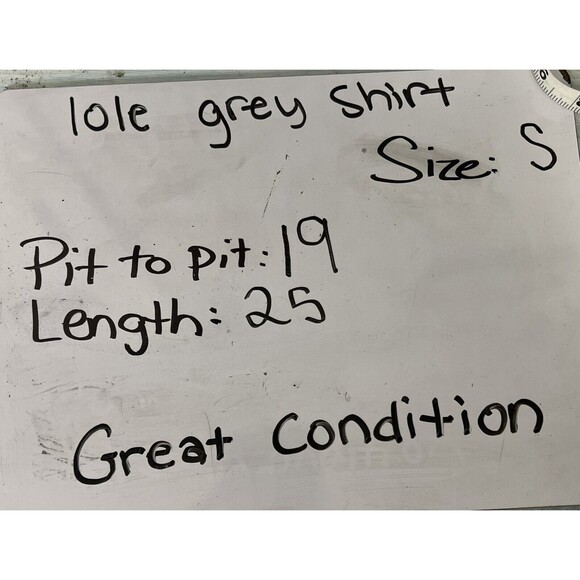 lole grey shirt
Size: S
Pit to pit: 19
Length: 25
Great Condition